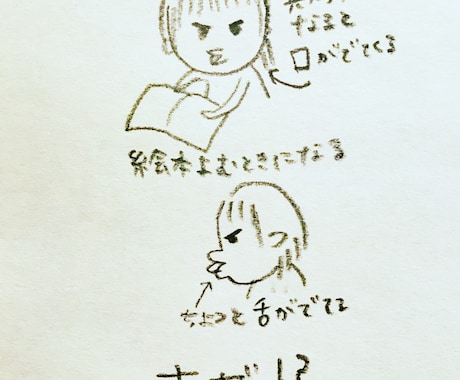 なると
口がでてくる
絵本よむときになる
ちょっと舌がでてる